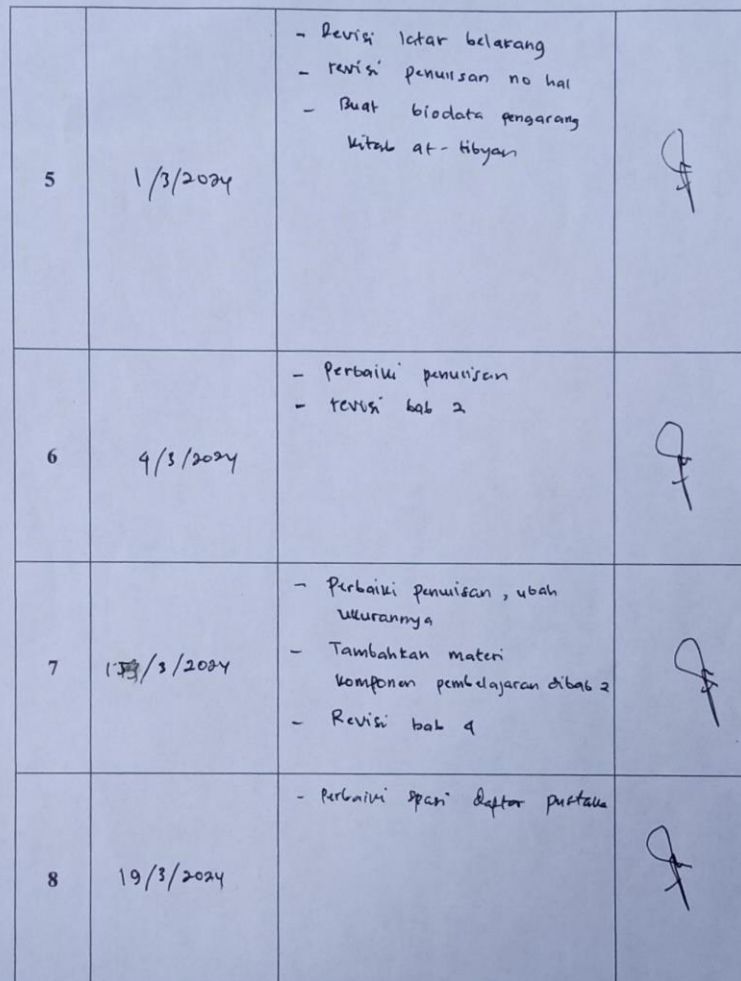 - Revisi latar belakang
- revisi penulisan no hal
- Buat biodata pengarang
kitab at-tibyan
5
1/3/2024
- Perbaiki penulisan
- revisi bab 2
6
4/3/2024
- Perbaiki penulisan, ubah
ukurannya
- Tambahkan materi
komponen pembelajaran dibab 2
- Revisi bab 4
7
/3/2024
- Perbaiki spasi daftar pustaka
8
19/3/2024